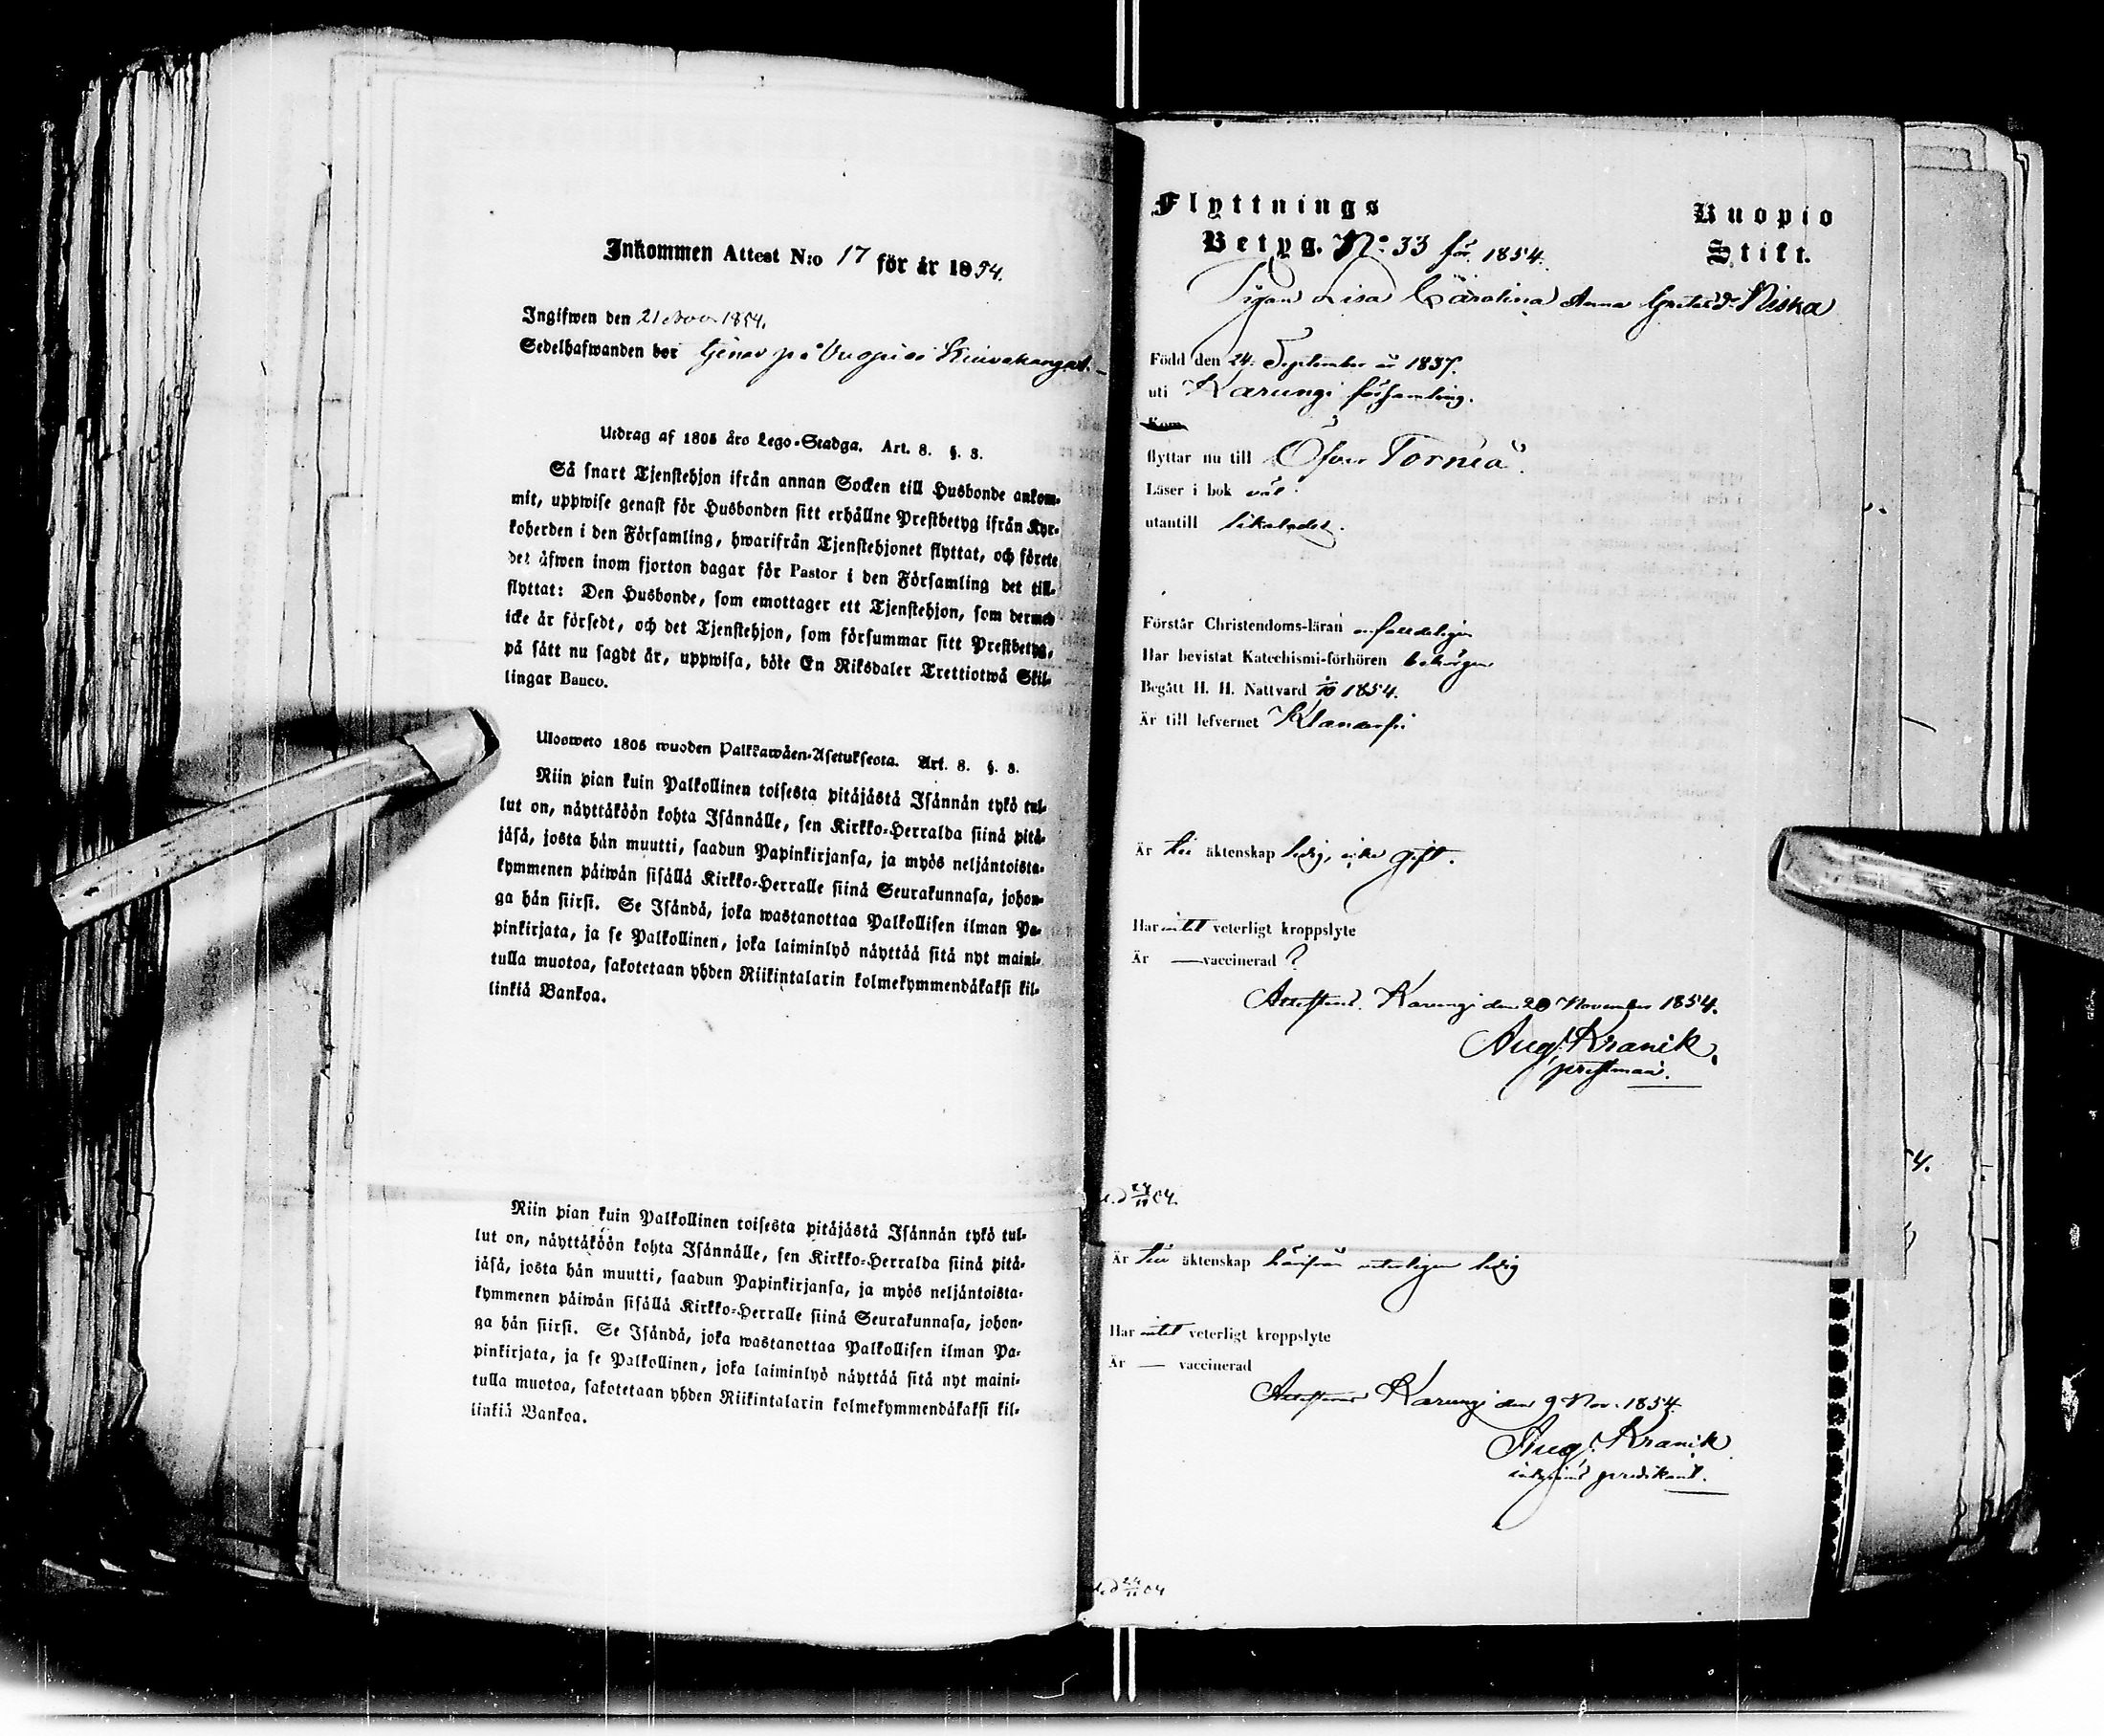 Inkommen Attest N:o 17 för år 1854.
Ingifwen den 21 Nov 1854.
Sedelhafwanden bor tjenar på Vuopio Kiuvakangas.
Utdrag af 1805 års Lego-Stadga. Art. 8. §. 8.
Så snart Tjenstehjon ifrån annan Socken till Husbonde ankom-
mit, uppwise genast för Husbonden sitt erhållne Prestbetyg ifrån Kyr-
koherden i den Församling, hwarifrån Tjenstehjonet flyttat, och förete
det åfwen inom fjorton dagar för Pastor i den Församling det till-
flyttat: Den Husbonde, som emottager ett Tjenstehjon, som dermed
icke är försedt, och det Tjenstehjon, som försummar sitt Prestbetyg,
på sätt nu sagdt är, uppwisa, böte En Riksdaler Trettiotwå Skil-
lingar Banco.
Ulosweto 1805 wuoden Palkkawäen-Asetuksesta. Art. 8. §. 8.
Niin pian kuin Palkollinen toisesta pitäjästä Isännän tykö tul-
lut on, näyttäköön kohta Isännälle, sen Kirkko-Herralda siinä pitä-
jäsä, josta hän muutti, saadun Papinkirjansa, ja myös neljäntoista-
kymmenen päiwän sisällä Kirkko-Herralle siinä Seurakunnasa, johon-
ga hän siirsi. Se Isändä, joka wastanottaa Palkollisen ilman Pa-
pinkirjata, ja se Palkollinen, joka laiminlyö näyttää sitä nyt maini-
tulla muotoa, sakotetaan yhden Riikintalarin kolmekymmendäkaksi kil-
linkiä Bankoa.
Niin pian kuin Palkollinen toisesta pitäjästä Isännän tykö tul-
lut on, näyttäköön kohta Isännälle, sen Kirkko-Herralda siinä pitä-
jäsä, josta hän muutti, saadun Papinkirjansa, ja myös neljäntoista-
kymmenen päiwän sisällä Kirkko-Herralle siinä Seurakunnasa, johon-
ga hän siirsi. Se Isändä, joka wastanottaa Palkollisen ilman Pa-
pinkirjata, ja se Palkollinen, joka laiminlyö näyttää sitä nyt maini-
tulla muotoa, sakotetaan yhden Riikintalarin kolmekymmendäkaksi kil-
linkiä Bankoa.
Flyttnings
Betyg. No 33 för 1854.
Kuopio
Stift.
Pigan Lisa Carolina Anna Gretasd:r Niska
Född den 24 September år 1837.
uti Karungi församling.
Kom
flyttar nu till Öfver Torneå.
Läser i bok väl.
utantill likaledes.
Förstår Christendoms-läran enfaldeligen
Har bevistat Katechismi-förhören behörigen
Begått H. H. Nattvard 1/10 1854.
Är till lefvernet Klanderfri
Är till äktenskap ledig, icke gift.
Har intet veterligt kroppslyte
Är — vaccinerad ?
Attesterat. Karungi den 20 November 1854.
Aug. Kranik,
prestman.
Är till äktenskap härifrån veterligen ledig
Har intet veterligt kroppslyte
Är — vaccinerad
Attesterar Karungi den 9 Nov. 1854.
Aug. Kranik
predikant.